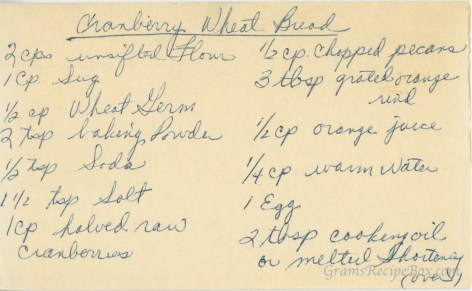 Cranberry Wheat Bread
2 cps unsifted Flour
1 Cp. Sug
1/2 cp Wheat Germ
2 tsp baking Powder
1/2 tsp Soda
1 1/2 tsp Salt
1 cp halved raw
cranberries
1/2 cp. chopped pecans
3 tbsp grated orange
rind
1/2 cp orange juice
1/4 cp warm water
1 Egg
2 tbsp cooking oil
or melted Shortening
(over)
GramsRecipeBox.com